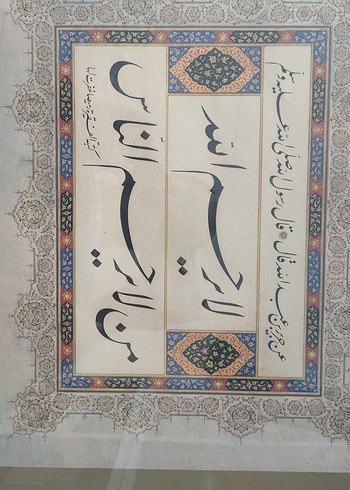 عن جرير بن عبد الله قال قال رسول الله صلى الله عليه وسلم
لا يرحم الله
من لا يرحم الناس
كتبه